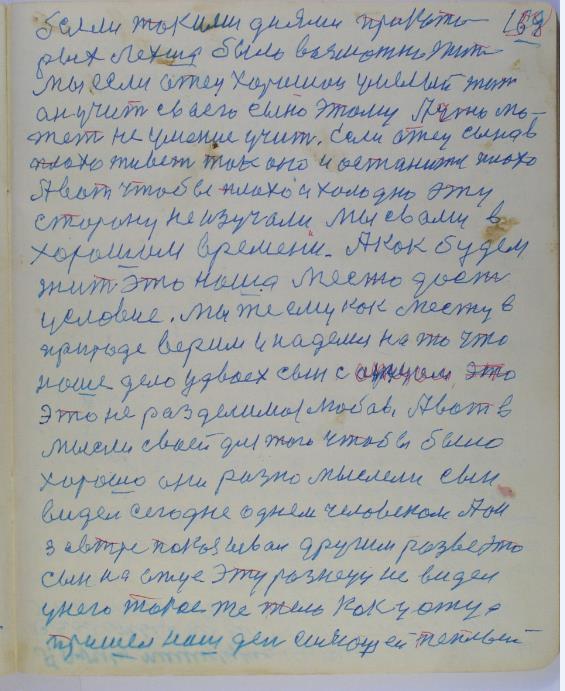 были такими днями при кото- 168
рых легша было возможно жит
мы если отец хороший умелый жит
он учит своего сына этому А отец мо-
жет не умение учит. Если отец сына в
плохо живет так оно и останится плохо
А вот чтобы плохо и холодно эту
сторону не изучали мы с вами в
хорошим времени. А как будем
жит это наша место даст
условие. Мы же ему как месту в
природе верим и надемся на то что
наше дело удвоех сын с отцом это
Это не разделимая любов. А вот в
мысли своей для того чтобы было
хорошо они разно мыслели сын
видел сегодне однем человеком А он
завтре показывал другим разве это
сын на отце эту разнецу не видел
у него такое же тело как у отца
пришел наш ден синощей теплый